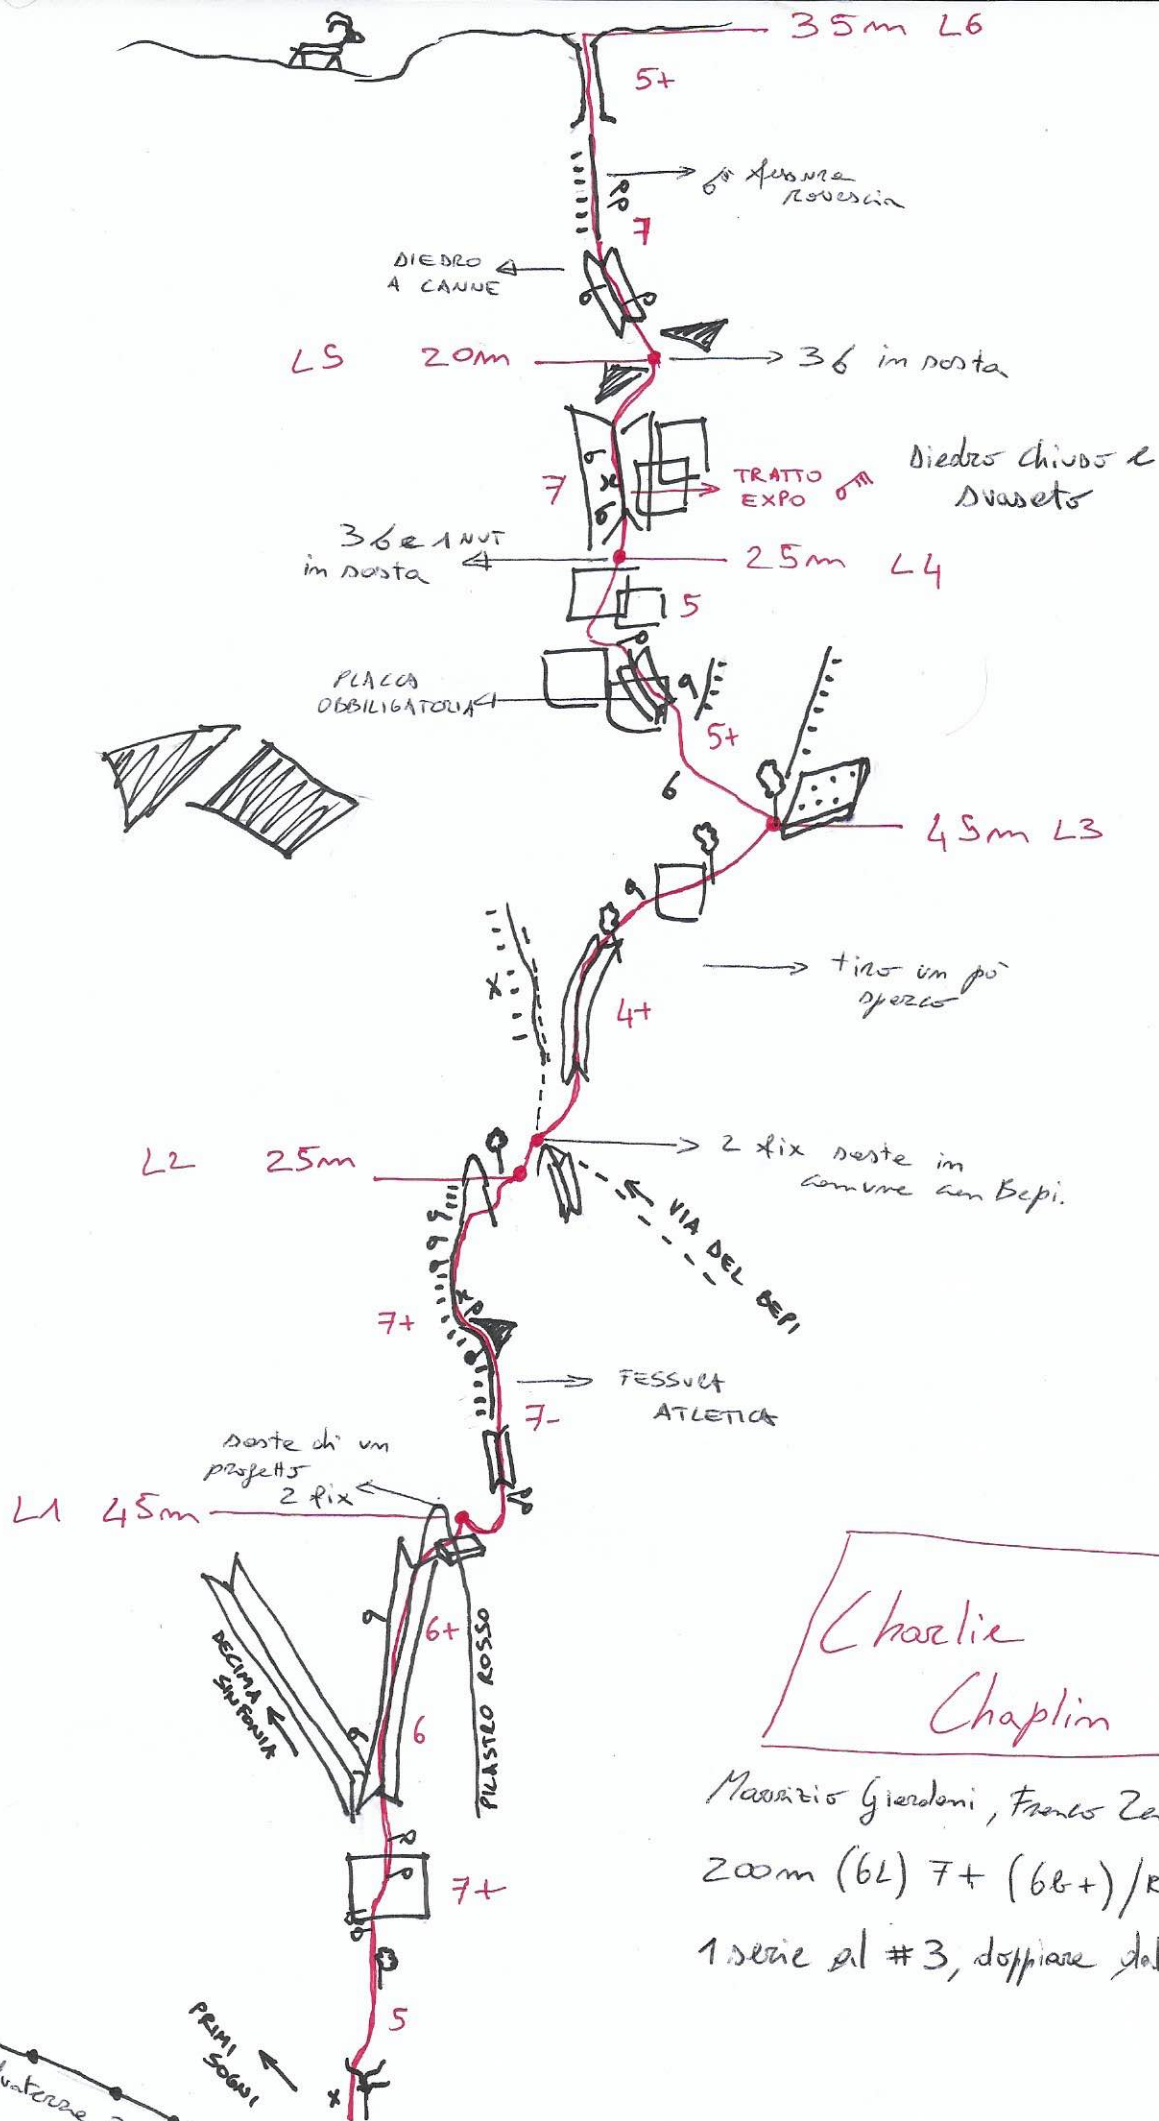 35m L6
5+
fessura
rovescia
7
DIEDRO
A CANNE
L5 20m
3 in sosta
7
TRATTO
EXPO
Diedro chiuso e
svasato
3 e 1 NUT
in sosta
25m L4
5
PLACCA
OBBILIGATORIA
5+
45m L3
tiro un pò
sporco
4+
L2 25m
2 fix soste in
comune con Bepi.
VIA DEL BEPI
7+
FESSURA
ATLETICA
7-
soste di un
progetto
2 fix
L1 45m
DECIMA
SINFONIA
6+
6
PILASTRO ROSSO
Charlie
Chaplin
Maurizio Giordani, Franco
200m (6L) 7+ (6b+)/R
1 serie al #3, doppiare dal
7+
5
PRIMI
SOGNI